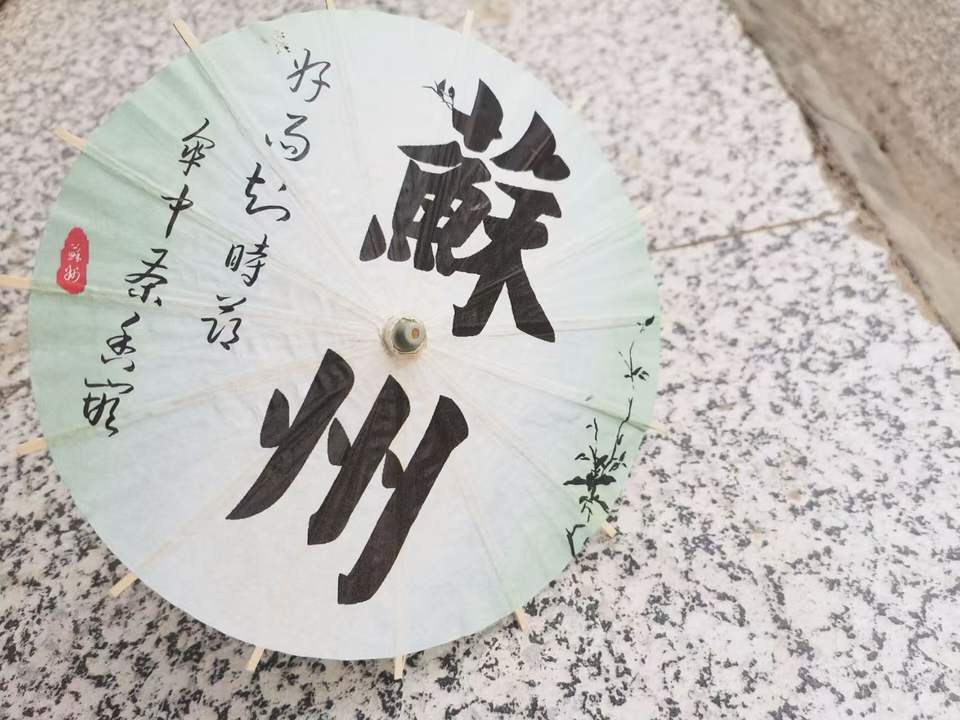 蘇州
好雨知時節
傘中茶香
蘇州